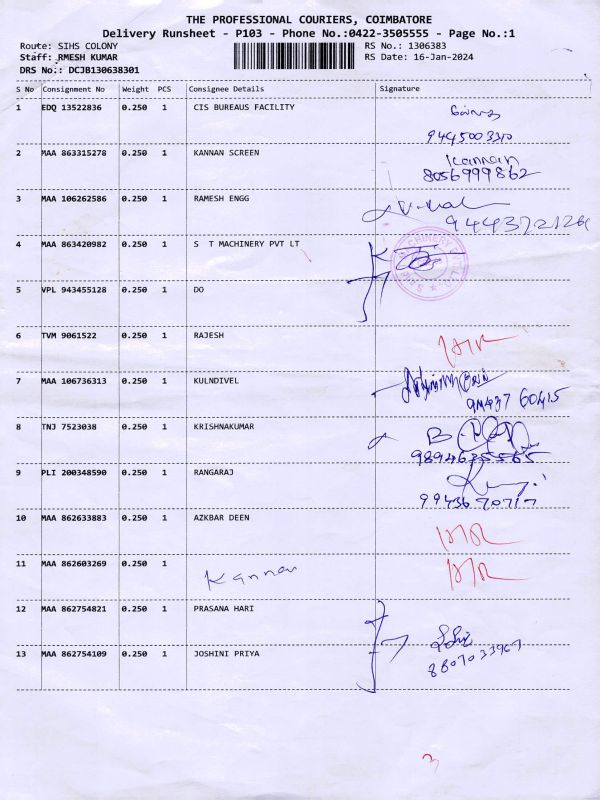 THE PROFESSIONAL COURIERS, COIMBATORE
Delivery Runsheet - P103 - Phone No.:0422-3505555 - Page No.:1
Route: SIHS COLONY
Staff: RMESH KUMAR
DRS No.: DCJB130638301
RS No.: 1306383
RS Date: 16-Jan-2024
S No Consignment No Weight PCS Consignee Details Signature
1 EDQ 13522836 0.250 1 CIS BUREAUS FACILITY
9445003310
2 MAA 863315278 0.250 1 KANNAN SCREEN Kannan
8056999862
3 MAA 106262586 0.250 1 RAMESH ENGG
4 MAA 863420982 0.250 1 S T MACHINERY PVT LT
5 VPL 943455128 0.250 1 DO
6 TVM 9061522 0.250 1 RAJESH
7 MAA 106736313 0.250 1 KULNDIVEL
8 TNJ 7523038 0.250 1 KRISHNAKUMAR
9894635565
9 PLI 200348590 0.250 1 RANGARAJ
9943670717
10 MAA 862633883 0.250 1 AZKBAR DEEN
11 MAA 862603269 0.250 1 Kannan
12 MAA 862754821 0.250 1 PRASANA HARI
13 MAA 862754109 0.250 1 JOSHINI PRIYA
8807033967
3